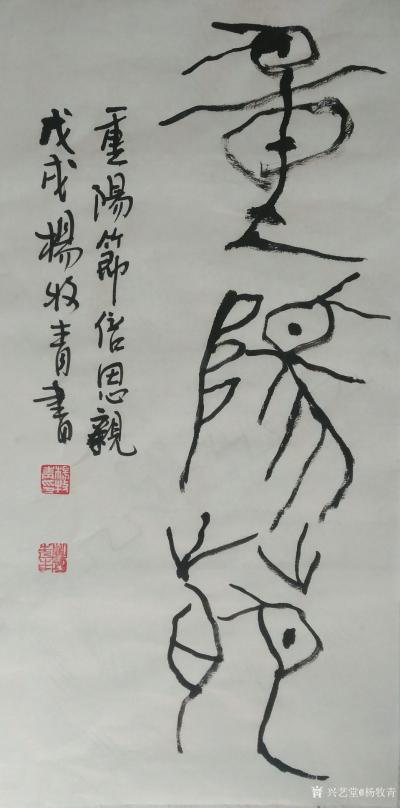 重陽節
重陽節倍思親
戊戌楊牧青書
兴艺堂@杨牧青